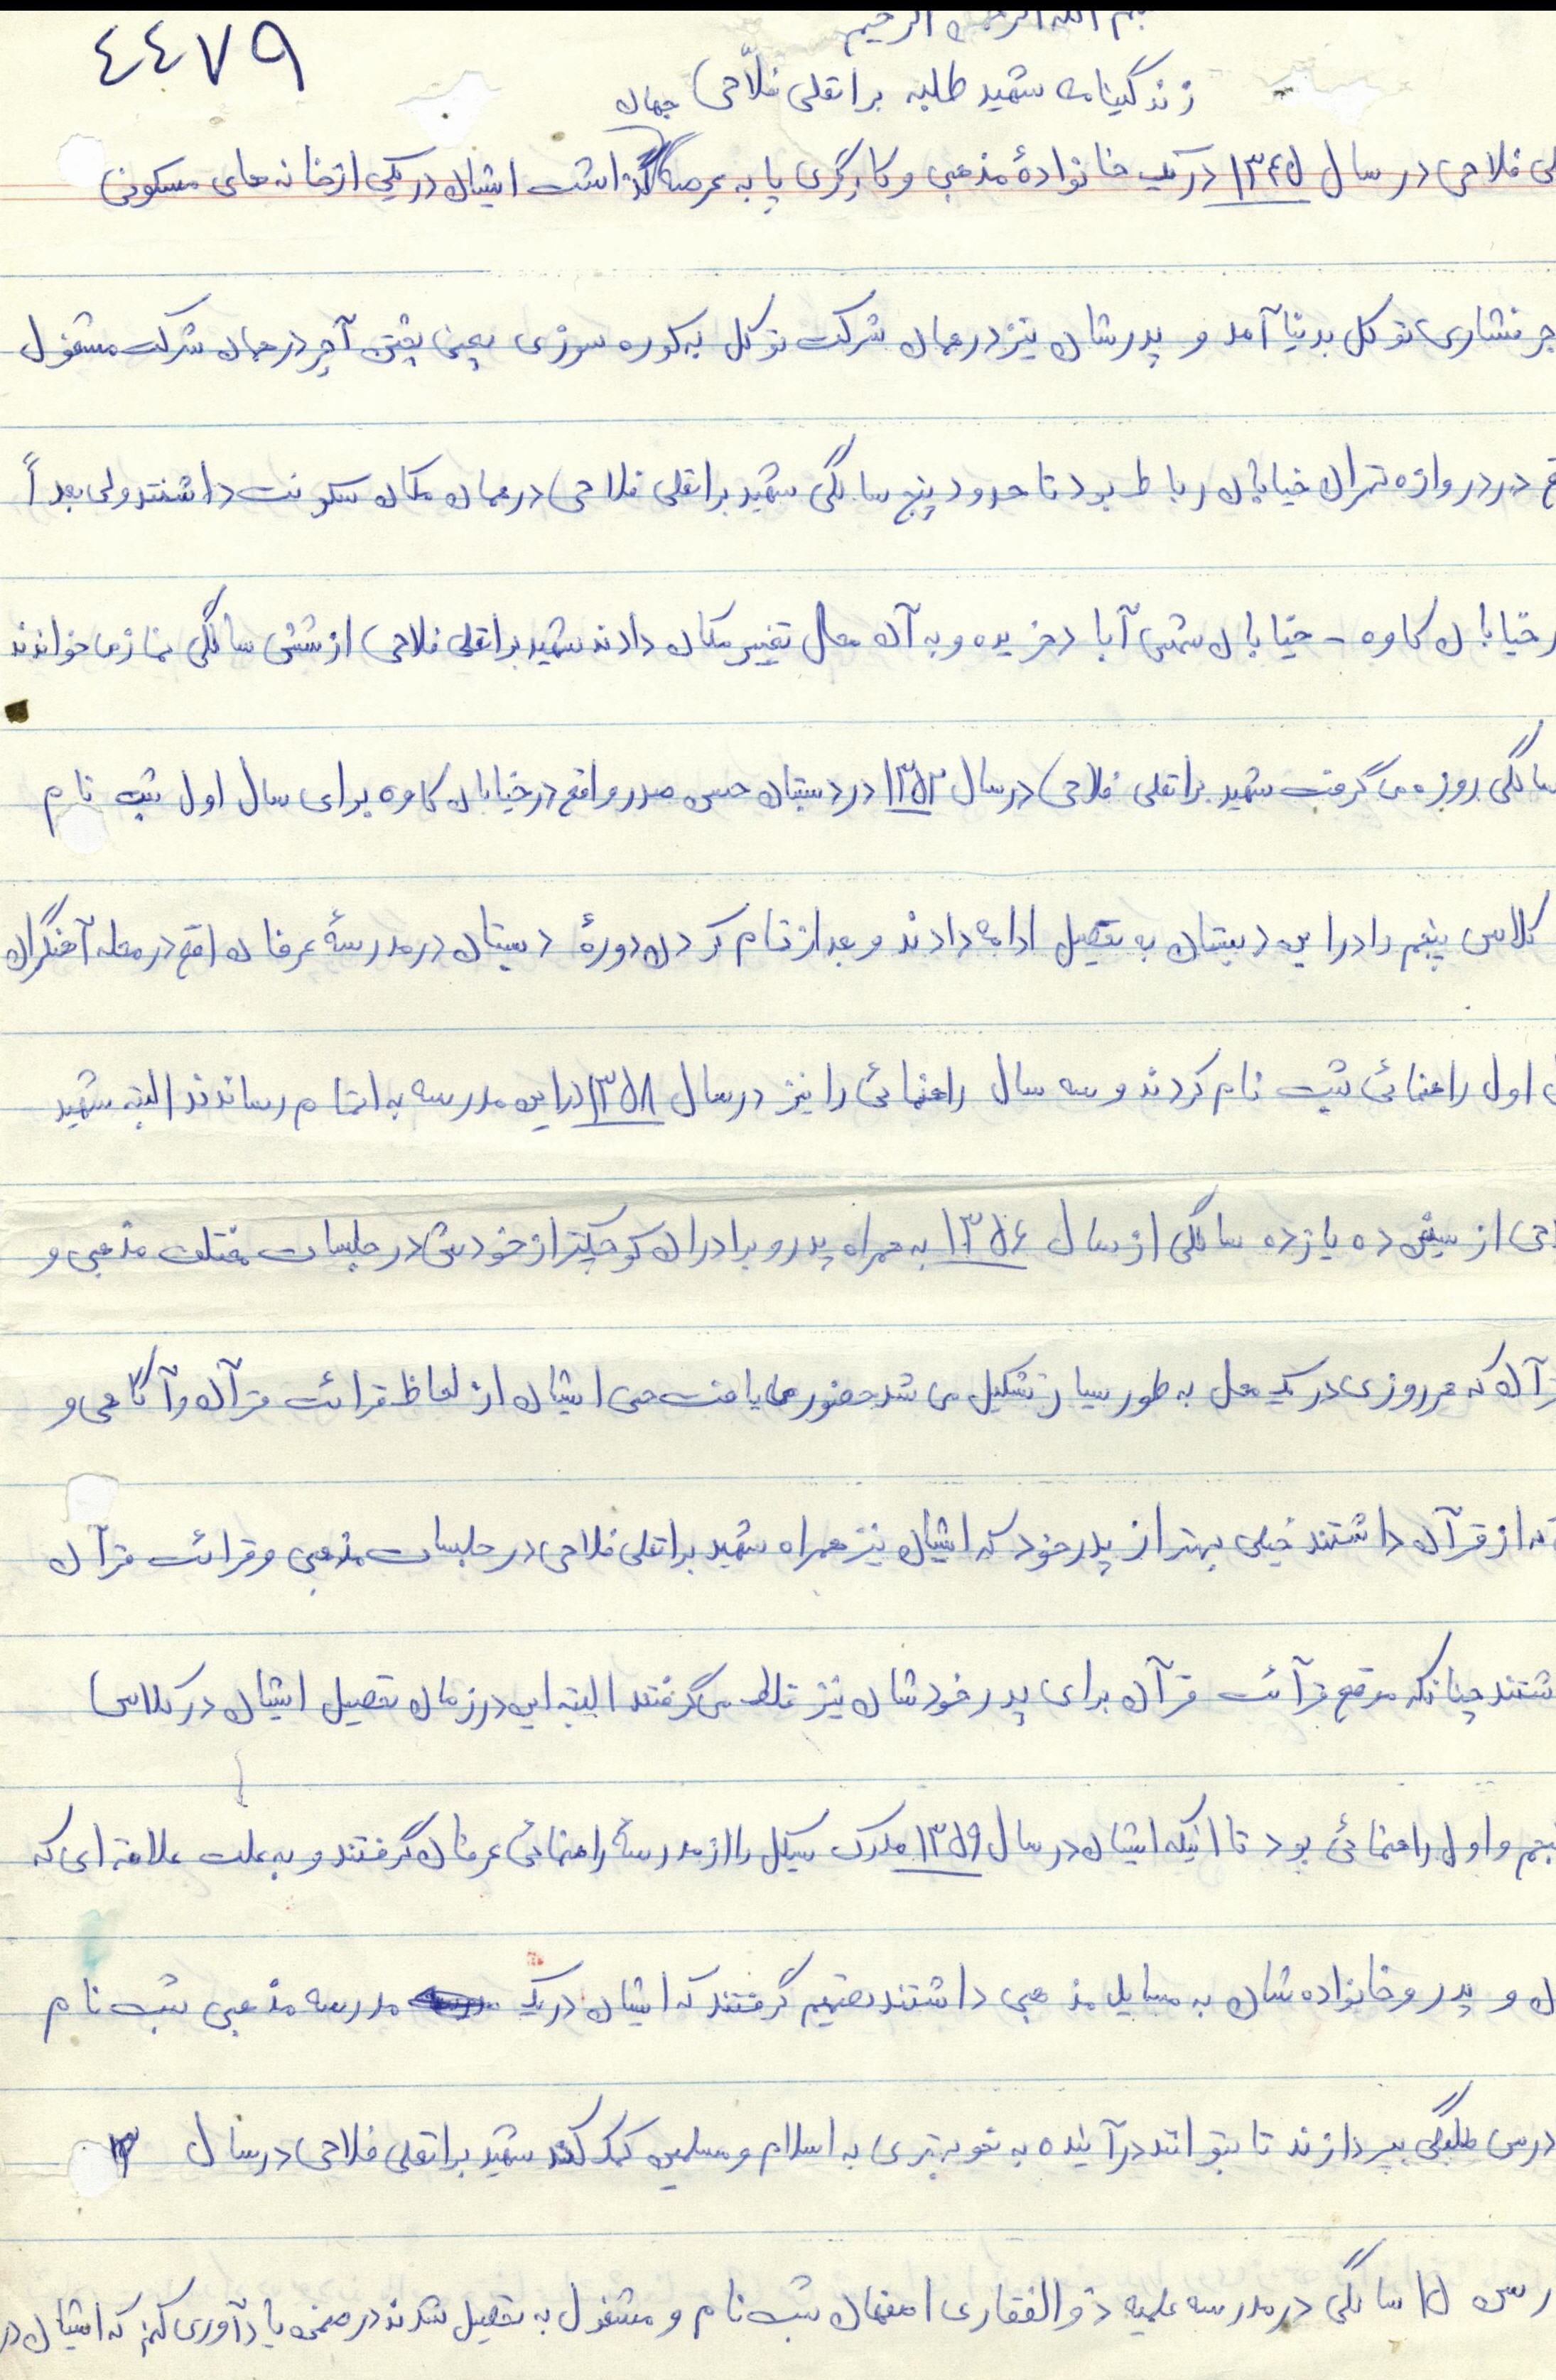 ٤٤٧٩
بسم الله الرحمن الرحیم
زندگینامه شهید طلبه براتعلی فلاحی جهان
فلاحی در سال ۱۳۴۵ در یک خانوادهٔ مذهبی و کارگری پا به عرصه گذاشت ایشان در یکی از خانه های مسکونی
فشاری توکل بدنیا آمد و پدرشان نیز در همان شرکت توکل به کوره سوزی یعنی پختن آجر در همان شرکت مشغول
در دروازه تهران خیابان رباط بود تا حدود پنج سالگی شهید براتعلی فلاحی در همان مکان سکونت داشتند ولی بعداً
خیابان کاوه - خیابان شمس آباد خریده و به آن محل تغییر مکان دادند شهید براتعلی فلاحی از شش سالگی نماز می خواندند
سالگی روزه می گرفت شهید براتعلی فلاحی در سال ۱۳۵۲ در دبستان حسن صدر واقع در خیابان کاوه برای سال اول ثبت نام
کلاس پنجم را در این دبستان به تحصیل ادامه دادند و بعد از تمام کردن دورهٔ دبستان در مدرسهٔ عرفان واقع در محله آهنگران
اول راهنمائی ثبت نام کردند و سه سال راهنمائی را نیز در سال ۱۳۵۸ در این مدرسه به اتمام رساندند البته شهید
از سن ده یازده سالگی از سال ۱۳۵۶ به همراه پدر و برادران کوچکتر از خودش در جلسات مختلف مذهبی و
قرآن که هر روزی در یک محل به طور سیار تشکیل می شد حضور می یافت حتی ایشان از لحاظ قرائت قرآن و آگاهی و
که از قرآن داشتند خیلی بهتر از پدر خود که ایشان نیز همراه شهید براتعلی فلاحی در جلسات مذهبی و قرائت قرآن
چنانکه موقع قرآئت قرآن برای پدر خودشان نیز غلط می گرفتند البته این در زمان تحصیل ایشان در کلاس
پنجم و اول راهنمائی بود تا اینکه ایشان در سال ۱۳۵۹ مدرک سیکل را از مدرسهٔ راهنمائی عرفان گرفتند و به علت علاقه ای که
و پدر و خانواده شان به مسایل مذهبی داشتند تصمیم گرفتند که ایشان در یک مدرسه مذهبی ثبت نام
درس طلبگی بپردازند تا بتوانند در آینده به نحو بهتری به اسلام و مسلمین کمک کند شهید براتعلی فلاحی در سال ۱۳
سن ۱۵ سالگی در مدرسه علمیه ذوالفقاری اصفهان ثبت نام و مشغول به تحصیل شدند در ضمن یادآوری کنم که ایشان در